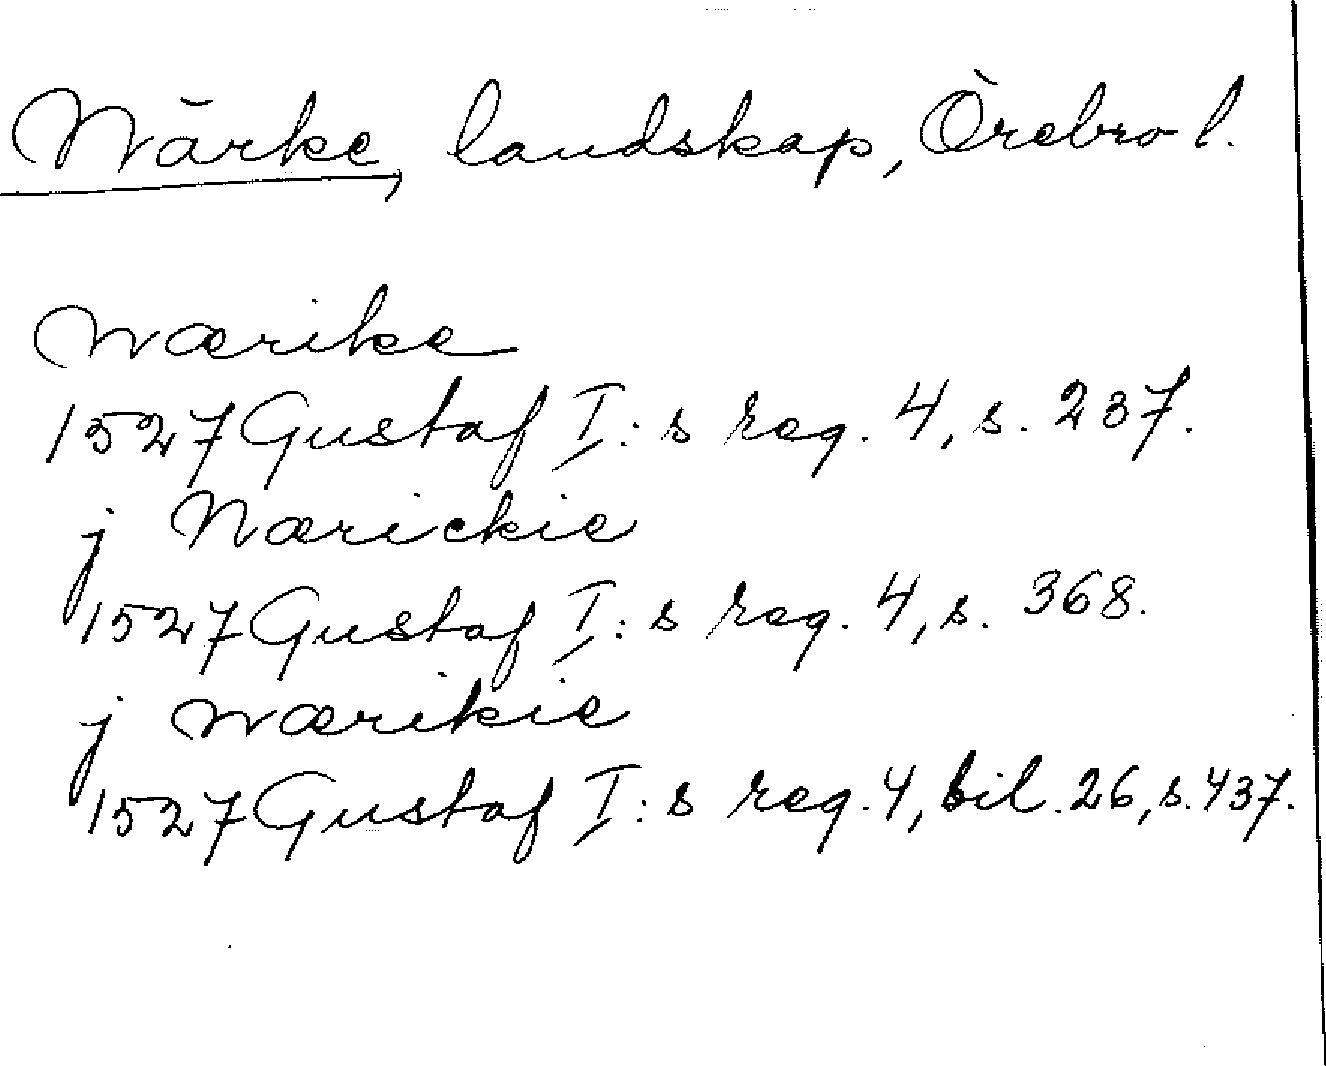 Närke, landskap, Örebro l.
nærike
1527 Gustaf I:s reg. 4, s. 237.
j Nærickie
1527 Gustaf I:s reg. 4, s. 368.
j nærikie
1527 Gustaf I:s reg. 4, bil. 26, s. 437.